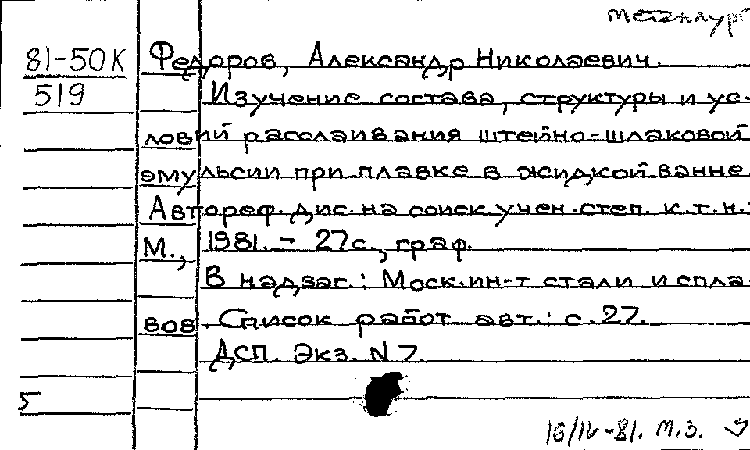 металлург
81-50К Федоров, Александр Николаевич.
519 Изучение состава, структуры и ус-
ловий расслаивания штейно-шлаковой
эмульсии при плавке в жидкой ванне
Автореф. дис. на соиск. учен. степ. к.т.н.
М., 1981. - 27с., граф.
В надзаг.: Моск. ин-т стали и спла-
вов. Список работ авт.: с. 27.
ДСП. Экз. N 7.
5
16/IV-81. М.З.